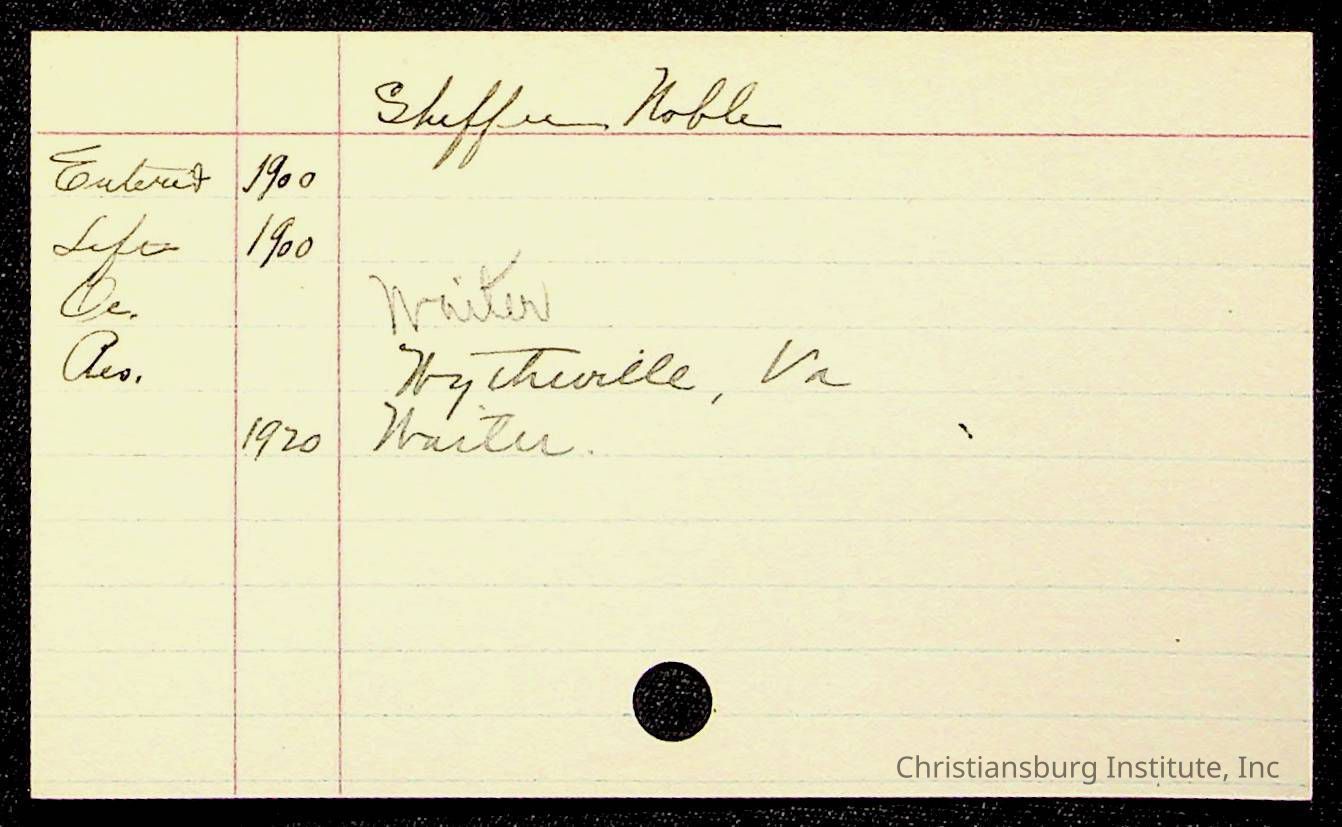 Sheffee Noble
Entered 1900
Left 1900
Oc. Waiter
Res. Wytheville, Va
1920 Waiter.
Christiansburg Institute, Inc